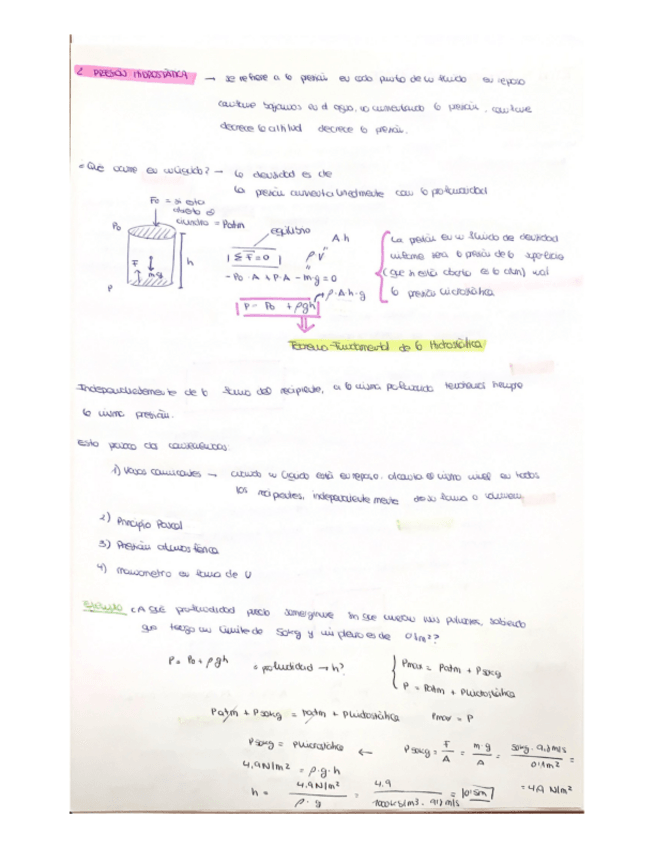 2. PRESIÓN HIDROSTÁTICA → se refiere a la presión en cada punto de un fluido en reposo
conforme bajamos en el agua, va aumentando la presión, conforme
decrece la altitud decrece la presión.
¿Qué ocurre en un líquido? → la densidad es cte
la presión aumenta linealmente con la profundidad
Fo = si está
abierto el
cilindro = Patm
Po
F
m·g
h
P
equilibrio
|Σ F = 0|
A h
ρ V
- Po · A + P·A - m·g = 0
ρ·A·h·g
P = Po + ρgh
La presión en un fluido de densidad
uniforme será la presión de la superficie
(que si está abierto es la atm) más
la presión hidrostática
Teorema Fundamental de la Hidrostática
Independientemente de la forma del recipiente, a la misma profundidad tendremos siempre
la misma presión.
Esto
1) Vasos comunicantes → cuando un líquido está en reposo, alcanza el mismo nivel en todos
los recipientes, independientemente de su forma o volumen
2) Principio Pascal
3) Presión atmosférica
4) Manómetro en forma de U
Ejemplo ¿A qué profundidad puedo sumergirme sin que mis pulmones, sabiendo
que tengo un límite de 50kg y mi es de 0'1m²?
P = Po + ρgh = → h?
Pmax = Patm + P50kg
P = Patm + Phidrostática
Patm + P50kg = Patm + Phidrostática Pmax = P
P50kg = Phidrostática ← P50kg = F/A = m·g/A = 50kg · 9,8 m/s / 0'1m² =
= 4,9 N/m²
4,9 N/m² = ρ·g·h
h = 4,9N/m² / ρ·g = 4,9 / 1000 kg/m3 · 9,8 m/s = 0'5m